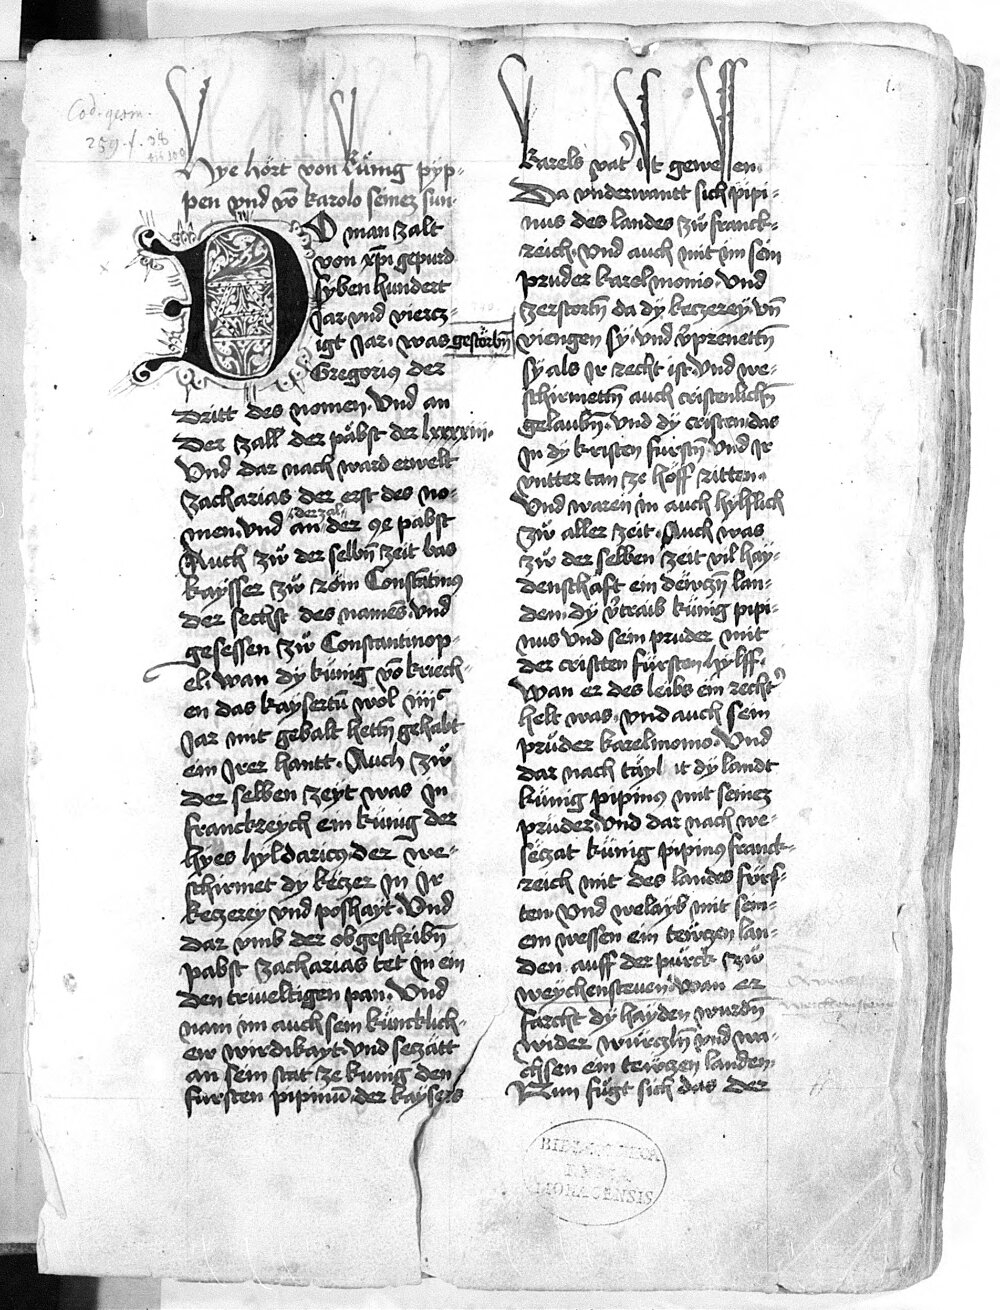 Cod. germ.
259. f. 38
1.
Hye hört von künig pyp-
pen vnd võ karolo seinez sun.
DO man zalt
von xp̃i gepurd
syben hundert
Jar vnd viercz-
igt Jar. was gestörbñ
Gregorius der
dritt des nomen. Vnd an
der zall der päbst der lxxxxiii.
Vnd dar nach ward erwelt
Zacharias der erst des no-
men. vnd an der zal der 94 pabst
Auch zü der selbñ zeit bas
kaysser zü röm Constãtinus
der sechst des namẽs. vnd
gesessen zü Constantinop-
el. wan dy künig võ kriech-
en das kaysertũ wol iiiiᶜ
Jar mit gebalt hettñ gehabt
ein Irer hantt. Auch zü
der selben zeyt was in
franckreych ein künig der
hyes hyldaricus. der we-
schirmet dy keczer in Ir
keczerey vnd poshayt. Vnd
dar vmb der obgeschribñ
pabst Zacharias tet in ein
den triueltigen pan. Vnd
nam im auch sein küncklich-
ew wirdikayt. vnd seczätt
an sein stat ze kunig den
fursten pipinũ. der kaysers
karels vat' ist gewessen.
Da vnderwantt sich pipi-
nus des landes zü franck-
reich. Vnd auch mit im sein
pruder karelmonio. Vnd
zerstortñ da dy keczerey. vñ
viengen sy. vnd v̈prenettñ
sy als Ir recht ist. Vnd we-
schirmettñ auch cristenlichñ
gelaubñ. Vnd dy cristen. das
In dy kristen fürstñ. Vnd Ir
vntter tan ze hoff ritten.
Vnd waren in auch hylflich
zü aller zeit. Auch was
zü der selben zeit vil hay-
denschaft ein dëwczñ lan-
den. dy v̈traib künig pipi-
nus vnd sein pruder mit
der cristten fürsten hylff.
Wan er des leibs ein recht'
helt was. vnd auch sein
prüder karelmonio. Vnd
dar nach täylit dy landt
künig pipinus mit seinez
prüder. Vnd dar nach we-
seczat künig pipinus franck-
reich mit des landes fürs-
ten. Vnd welayb mit sein-
em wessen ein tewczen lan-
den. auff der pürck zw
weychensteuen. wan er
farcht dy hayden wurdñ
wider würczlñ vnd wa-
chsen ein tewczen landen.
Nun fügt sich das der
BIBLIOTHECA
REGIA
MONACENSIS